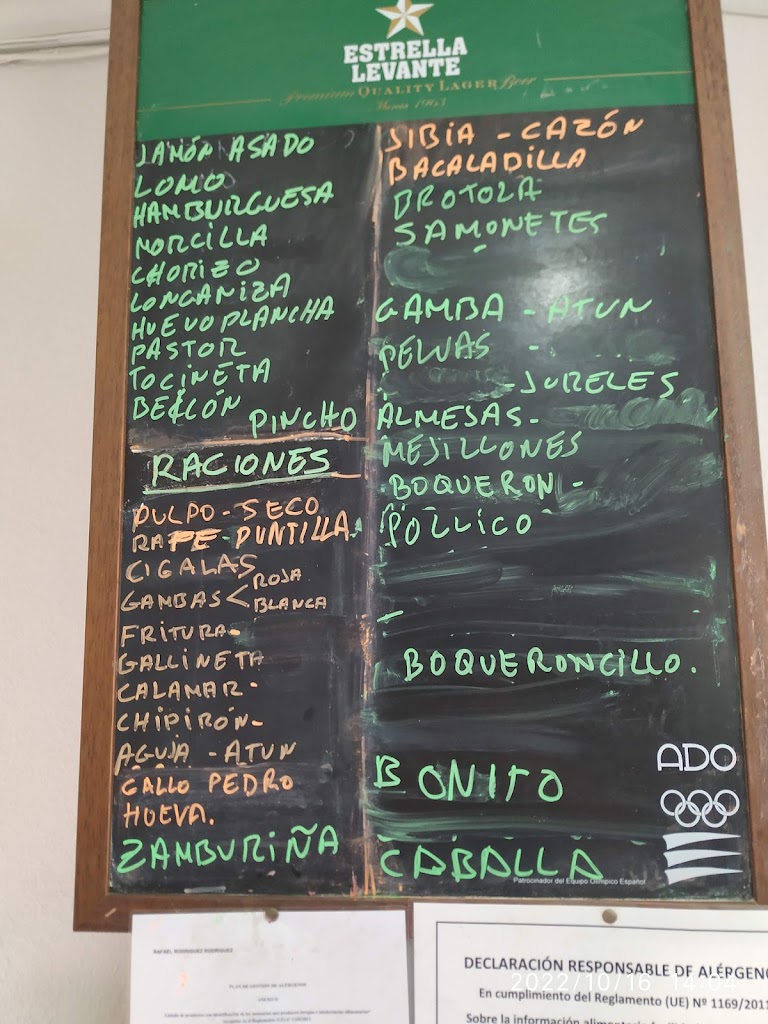 ESTRELLA
LEVANTE
Premium QUALITY LAGER Beer
JAMÓN ASADO
LOMO
HAMBURGUESA
MORCILLA
CHORIZO
LONGANIZA
HUEVO PLANCHA
PASTOR
TOCINETA
BEICÓN
PINCHO
RACIONES
PULPO - SECO
RAPE - PUNTILLA
CIGALAS
GAMBAS < ROJA
BLANCA
FRITURA
GALLINETA
CALAMAR -
CHIPIRÓN -
AGUJA - ATUN
GALLO PEDRO
HUEVA.
ZAMBURIÑA
SIBIA - CAZÓN
BACALADILLA
BROTOLA
SAMONETES
GAMBA - ATUN
PELUAS -
- JURELES
ALMESAS -
MEJILLONES
BOQUERON -
POLLICO
BOQUERONCILLO.
BONITO
CABALLA
ADO
Patrocinador del Equipo Olímpico Español
RAFAEL RODRIGUEZ RODRIGUEZ
PLAN DE GESTIÓN DE ALÉRGENOS
ANEXO II
DECLARACIÓN RESPONSABLE DE ALÉRGENO
En cumplimiento del Reglamento (UE) Nº 1169/2011
Sobre la información
2022/10/16 14:04